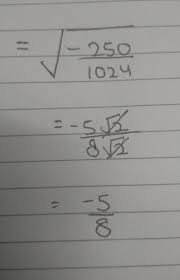 = √-250/1024
= -5√2/8√2
= -5/8